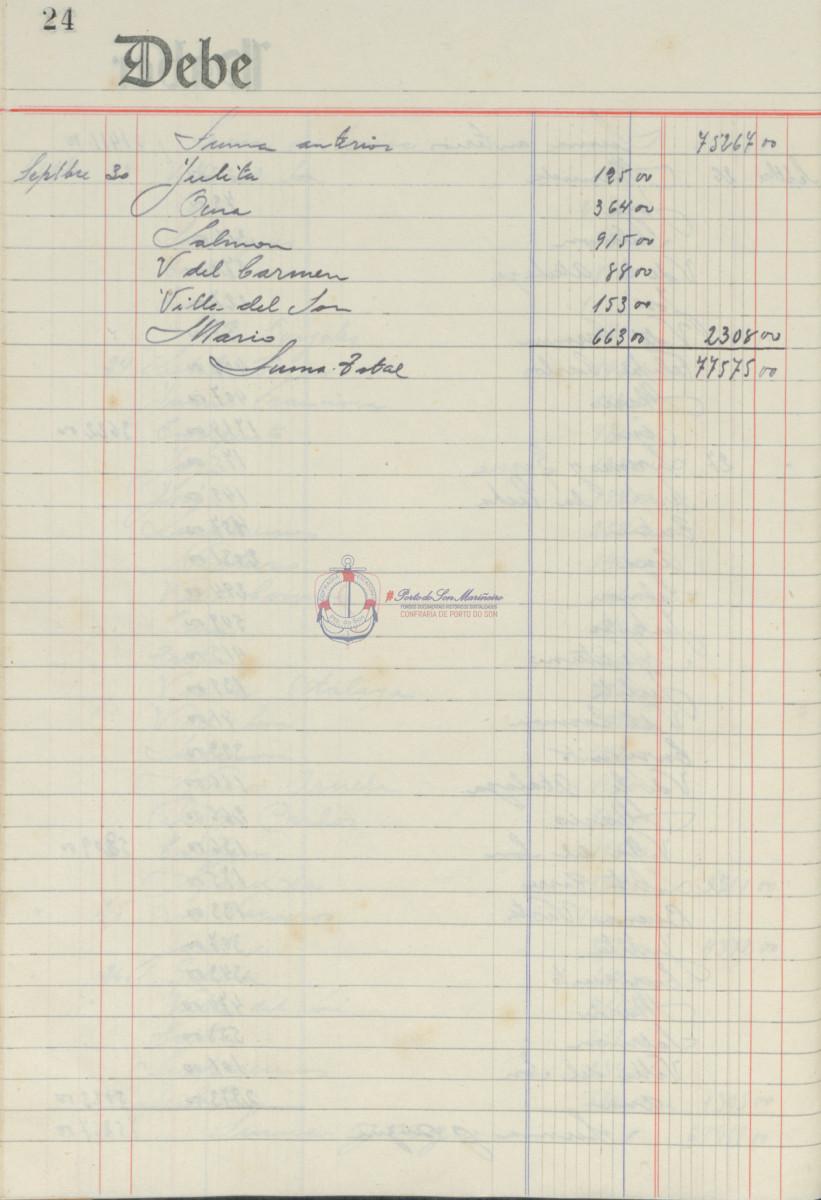 24
Debe
Suma anterior 75267 00
Septbre 30 Julita 125 00
Ona 364 00
Salmon 915 00
V del Carmen 88 00
Villa del Son 153 00
Mario 663 00 2308 00
Suma Total 77575 00
#PortodoSonMariñeiro
FONDOS DOCUMENTAIS HISTÓRICOS DIXITALIZADOS
CONFRARÍA DE PORTO DO SON